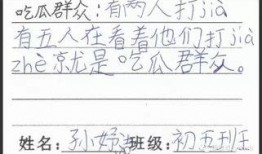 吃瓜群众：有两人打jià
有五人在看着他们打jià
zhè就是吃瓜群众。
姓名：孙婷 班级：初五班王